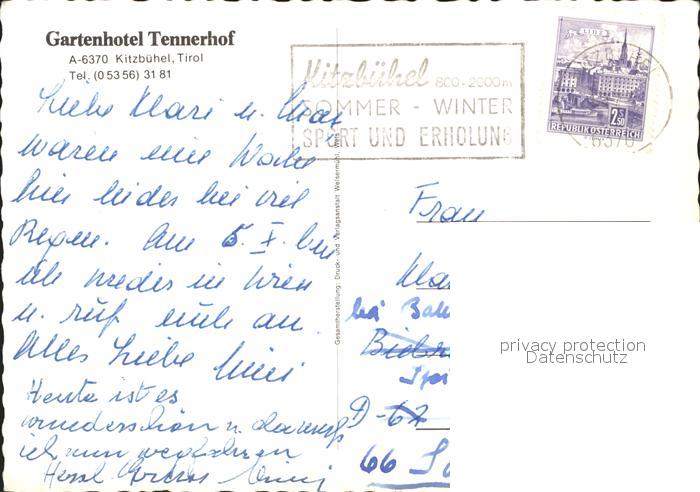 Gartenhotel Tennerhof
A-6370 Kitzbühel, Tirol
Tel. (0 53 56) 31 81
Kitzbühel 800-2000m
SOMMER - WINTER
SPORT UND ERHOLUNG
LINZ
2 S 50
REPUBLIK ÖSTERREICH
6370
Liebe Klari u.
waren eine Woche
hier leider bei viel
Regen. Am 5. X. bin
ich wieder in Wien
u. ruf euch an.
Alles Liebe Mimi
Heute ist es
wunderschön u. da muss
ich nun wegfahren
Herzl.
Gesamtherstellung: Druck- und Verlagsanstalt Welsermühl, Wels
Frau
Kla
bei
D-62
66
privacy protection
Datenschutz